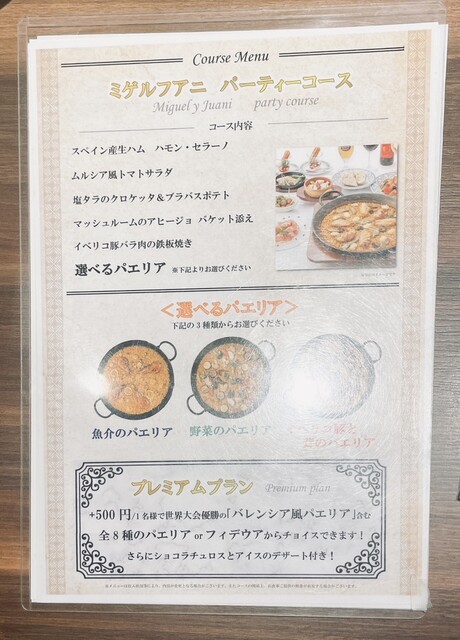 Course Menu
ミゲルフアニ パーティーコース
Miguel y Juani party course
コース内容
スペイン産生ハム ハモン・セラーノ
ムルシア風トマトサラダ
塩タラのクロケッタ&ブラバスポテト
マッシュルームのアヒージョ バケット添え
イベリコ豚バラ肉の鉄板焼き
選べるパエリア ※下記よりお選びください
<選べるパエリア>
下記の3種類からお選びください
魚介のパエリア
野菜のパエリア
イベリコ豚と
茸のパエリア
プレミアムプラン Premium plan
+500円/1名様で世界大会優勝の「バレンシア風パエリア」含む
全8種のパエリア or フィデウアからチョイスできます!
さらにショコラチュロスとアイスのデザート付き!